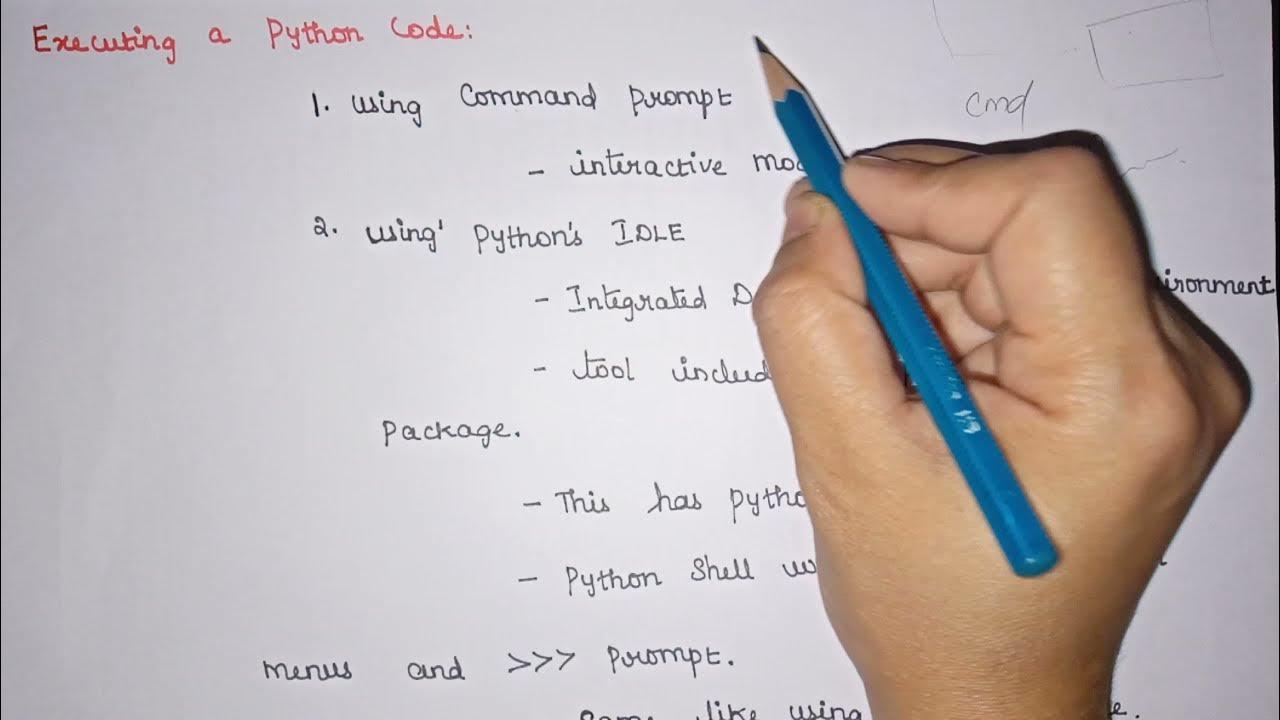 Executing a Python Code:
1. using Command prompt
cmd
- interactive
2. using Python's IDLE
- Integrated
- tool
package.
- This has
- Python Shell
menus and >>> prompt.
like using